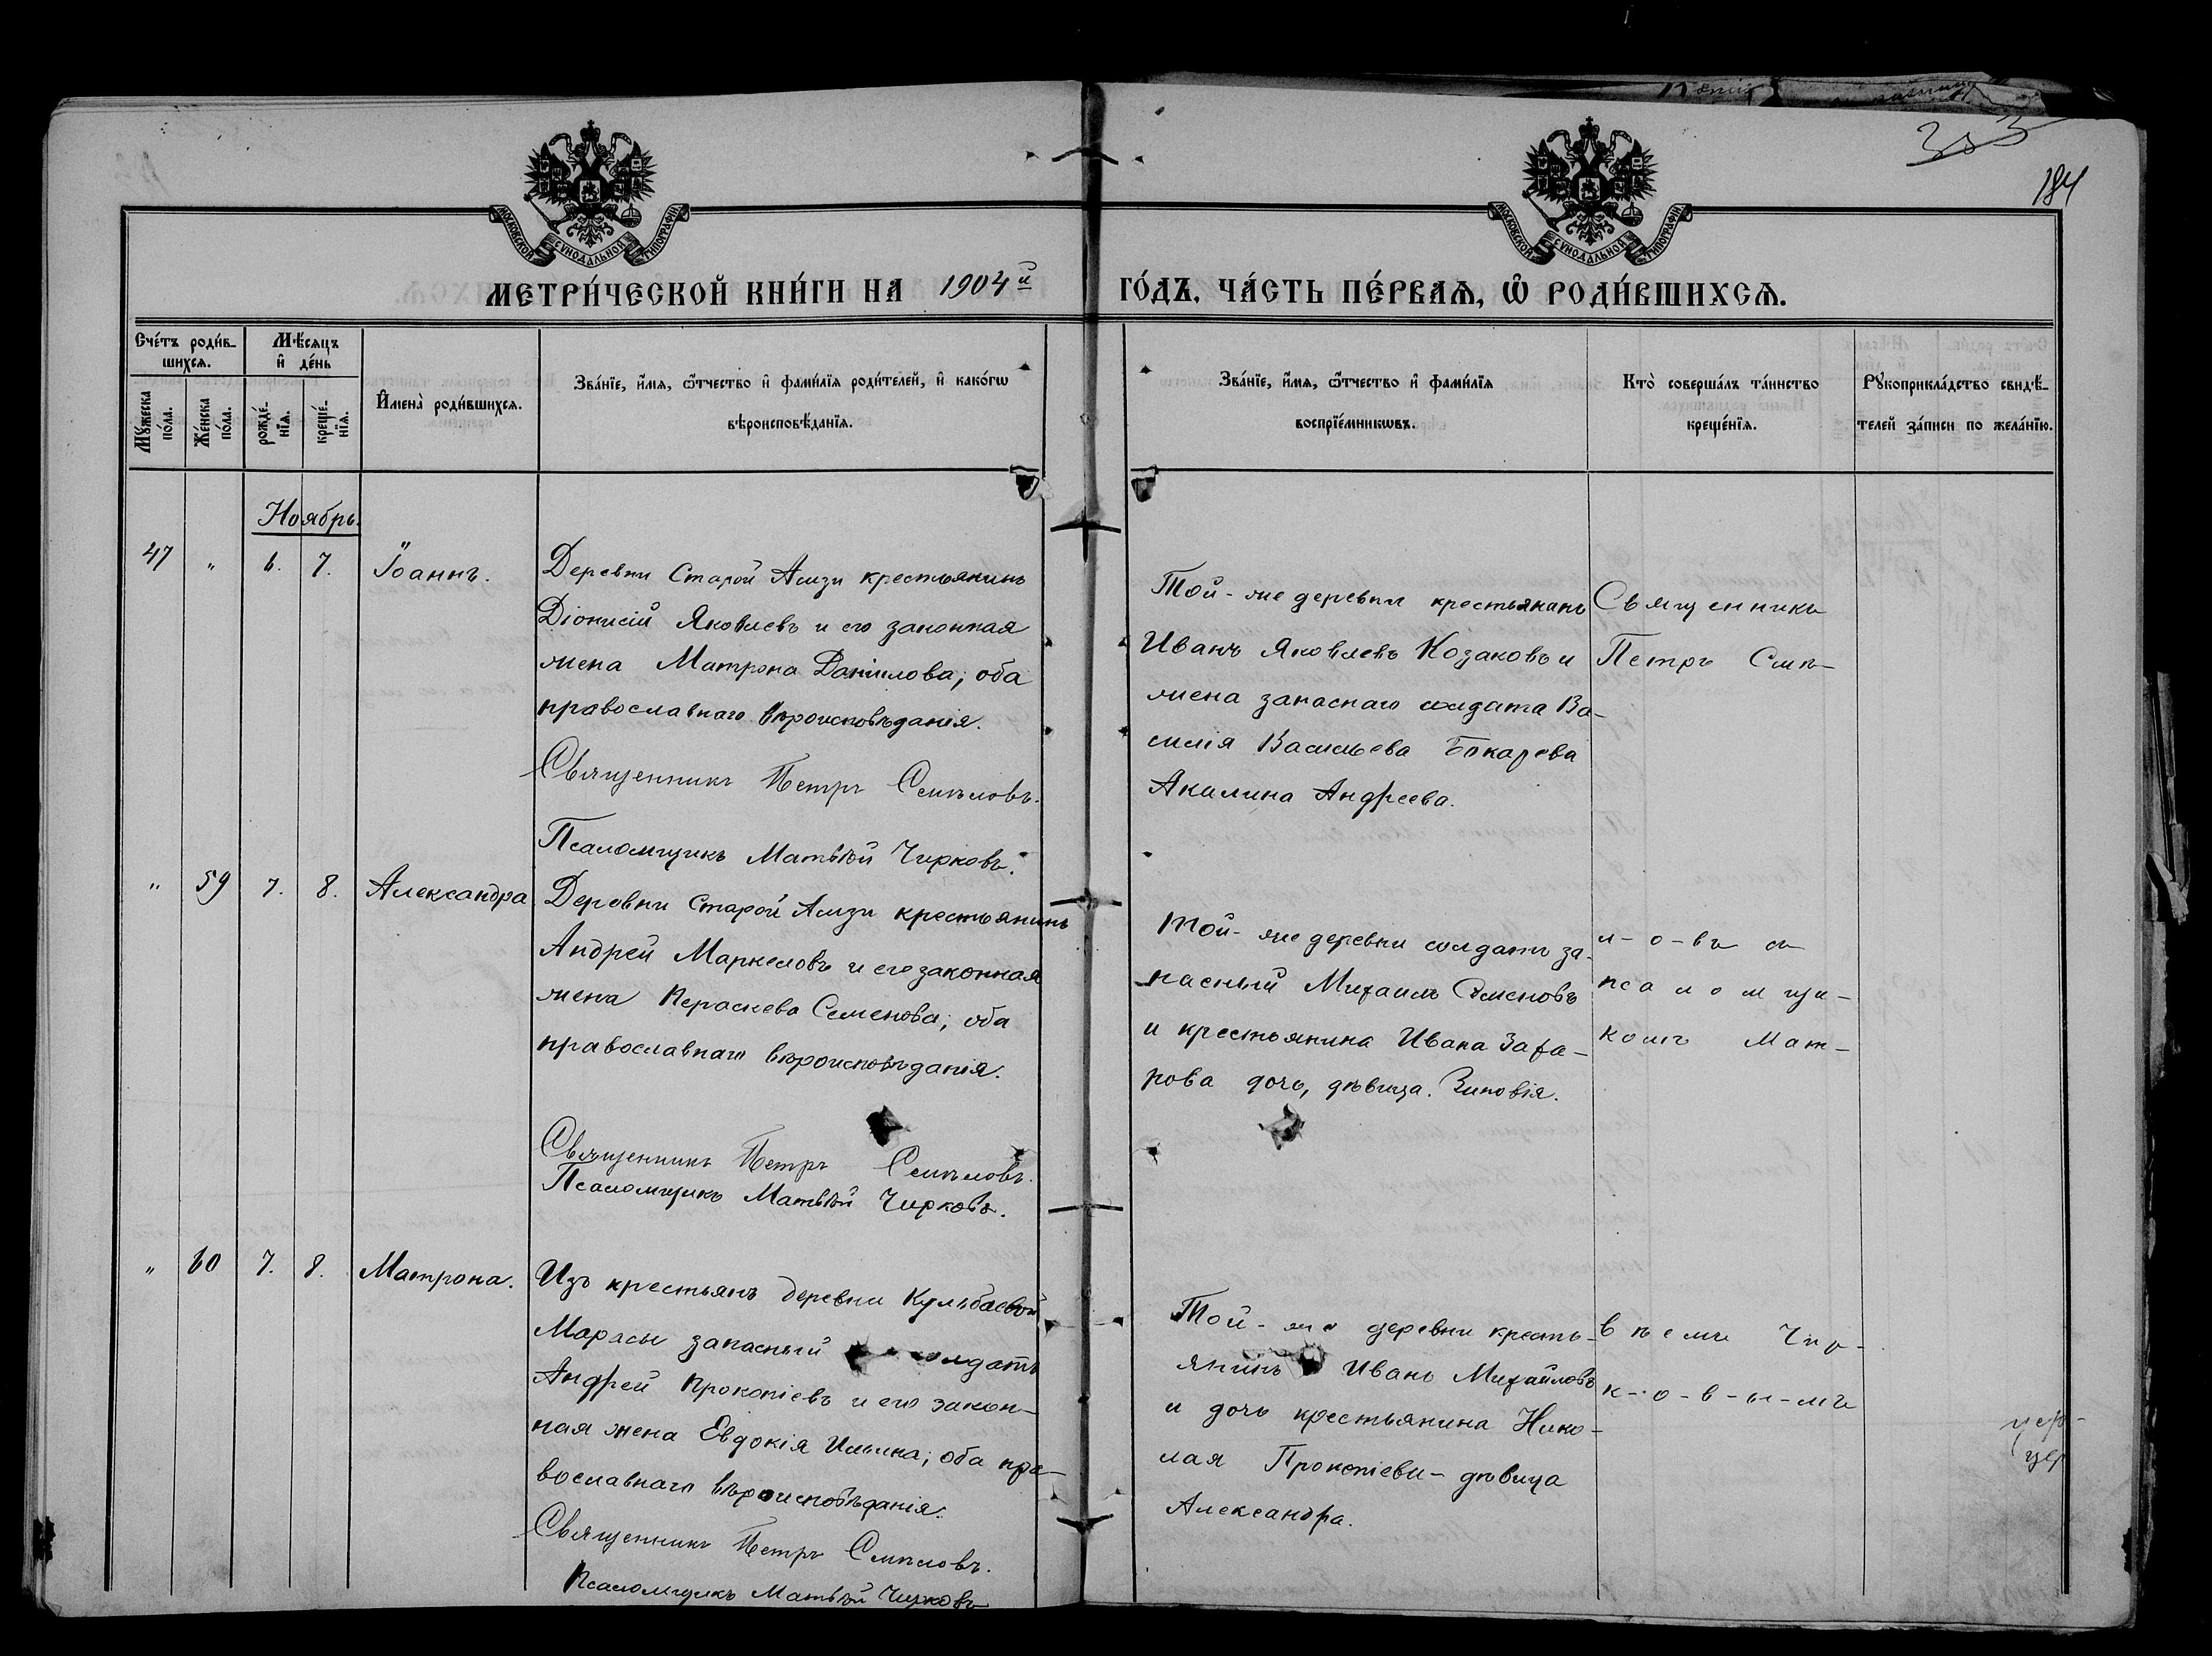 353
184
МОСКОВСКОЙ СѴНОДАЛЬНОЙ ТИПОГРАФІИ
МОСКОВСКОЙ СѴНОДАЛЬНОЙ ТИПОГРАФІИ
МЕТРИ́ЧЕСКОЙ КНИ́ГИ НА 1904й ГО́ДЪ, ЧА́СТЬ ПЕ́РВАѦ, Ѡ҆ РОДИ́ВШИХСѦ.
Сче́тъ роди́в-
шихсѧ.
Мꙋ́жеска
по́ла.
Же́нска
по́ла.
Мѣ́сяцъ
и҆ де́нь
рожде́-
нїѧ.
креще́-
нїѧ.
И҆мена̀ роди́вшихсѧ.
Зва́нїе, и҆́мѧ, ѻ҆́тчество и҆ фами́лїѧ роди́телей, и҆ како́гѡ
вѣроисповѣ́данїѧ.
Зва́нїе, и҆́мѧ, ѻ҆́тчество и҆ фами́лїѧ
воспрїе́мникѡвъ.
Кто̀ соверша́лъ та́инство
креще́нїѧ.
Рꙋкоприкла́дство свидѣ́-
телей за́писи по жела́нїю.
Ноябрь.
47 " 6. 7. Іоаннъ.
Деревни Старой Амзи крестьянинъ
Діонисій Яковлевъ и его законная
жена Матрона Данилова; оба
православнаго вѣроисповѣданія.
Священникъ Петръ Смѣловъ.
Псаломщикъ Матвѣй Чирковъ.
Той-же деревни крестьянинъ
Иванъ Яковлевъ Козаковъ и
жена запаснаго солдата Ва-
силія Васильева Бокарева
Акилина Андреева.
Священникъ
Петръ Смѣ-
" 59 7. 8. Александра
Деревни Старой Амзи крестьянинъ
Андрей Маркеловъ и его законная
жена Параскева Семенова; оба
православнаго вѣроисповѣданія.
Священникъ Петръ Смѣловъ.
Псаломщикъ Матвѣй Чирковъ.
Той-же деревни солдатъ за-
пасный Михаилъ Семеновъ
и крестьянина Ивана Заха-
рова дочь, дѣвица Зиновія.
л-о-въ съ
псаломщи-
комъ Мат-
" 60 7. 8. Матрона.
Изъ крестьянъ деревни Кульбаевой
Марасы запасный солдатъ
Андрей Прокопіевъ и его закон-
ная жена Евдокія Ильина; оба пра-
вославнаго вѣроисповѣданія.
Священникъ Петръ Смѣловъ.
Псаломщикъ Матвѣй Чирковъ
Той-же деревни кресть-
янинъ Иванъ Михайловъ
и дочь крестьянина Нико-
лая Прокопіева-дѣвица
Александра.
вѣемъ Чир-
к-о-в-ы-мъ